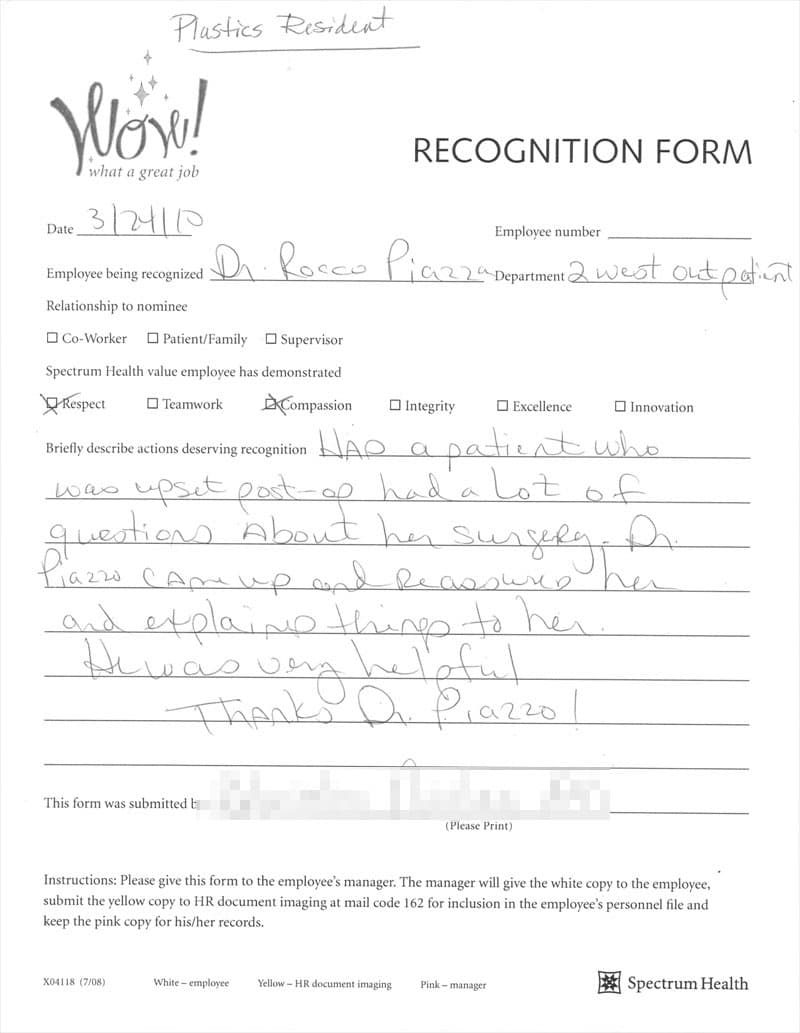 Plastics Resident
Wow!
what a great job
RECOGNITION FORM
Date 3/24/10
Employee number
Employee being recognized Dr. Rocco Piazza Department 2 west outpatient
Relationship to nominee
☐ Co-Worker ☐ Patient/Family ☐ Supervisor
Spectrum Health value employee has demonstrated
☒ Respect ☐ Teamwork ☒ Compassion ☐ Integrity ☐ Excellence ☐ Innovation
Briefly describe actions deserving recognition HAD a patient who
was upset post-op had a Lot of
questions About her surgery. Dr.
Piazzo CAme up and Reassured her
and explained things to her.
He was very helpful
Thanks Dr. Piazzo!
This form was submitted b
(Please Print)
Instructions: Please give this form to the employee's manager. The manager will give the white copy to the employee,
submit the yellow copy to HR document imaging at mail code 162 for inclusion in the employee's personnel file and
keep the pink copy for his/her records.
X04118 (7/08) White – employee Yellow – HR document imaging Pink – manager
Spectrum Health